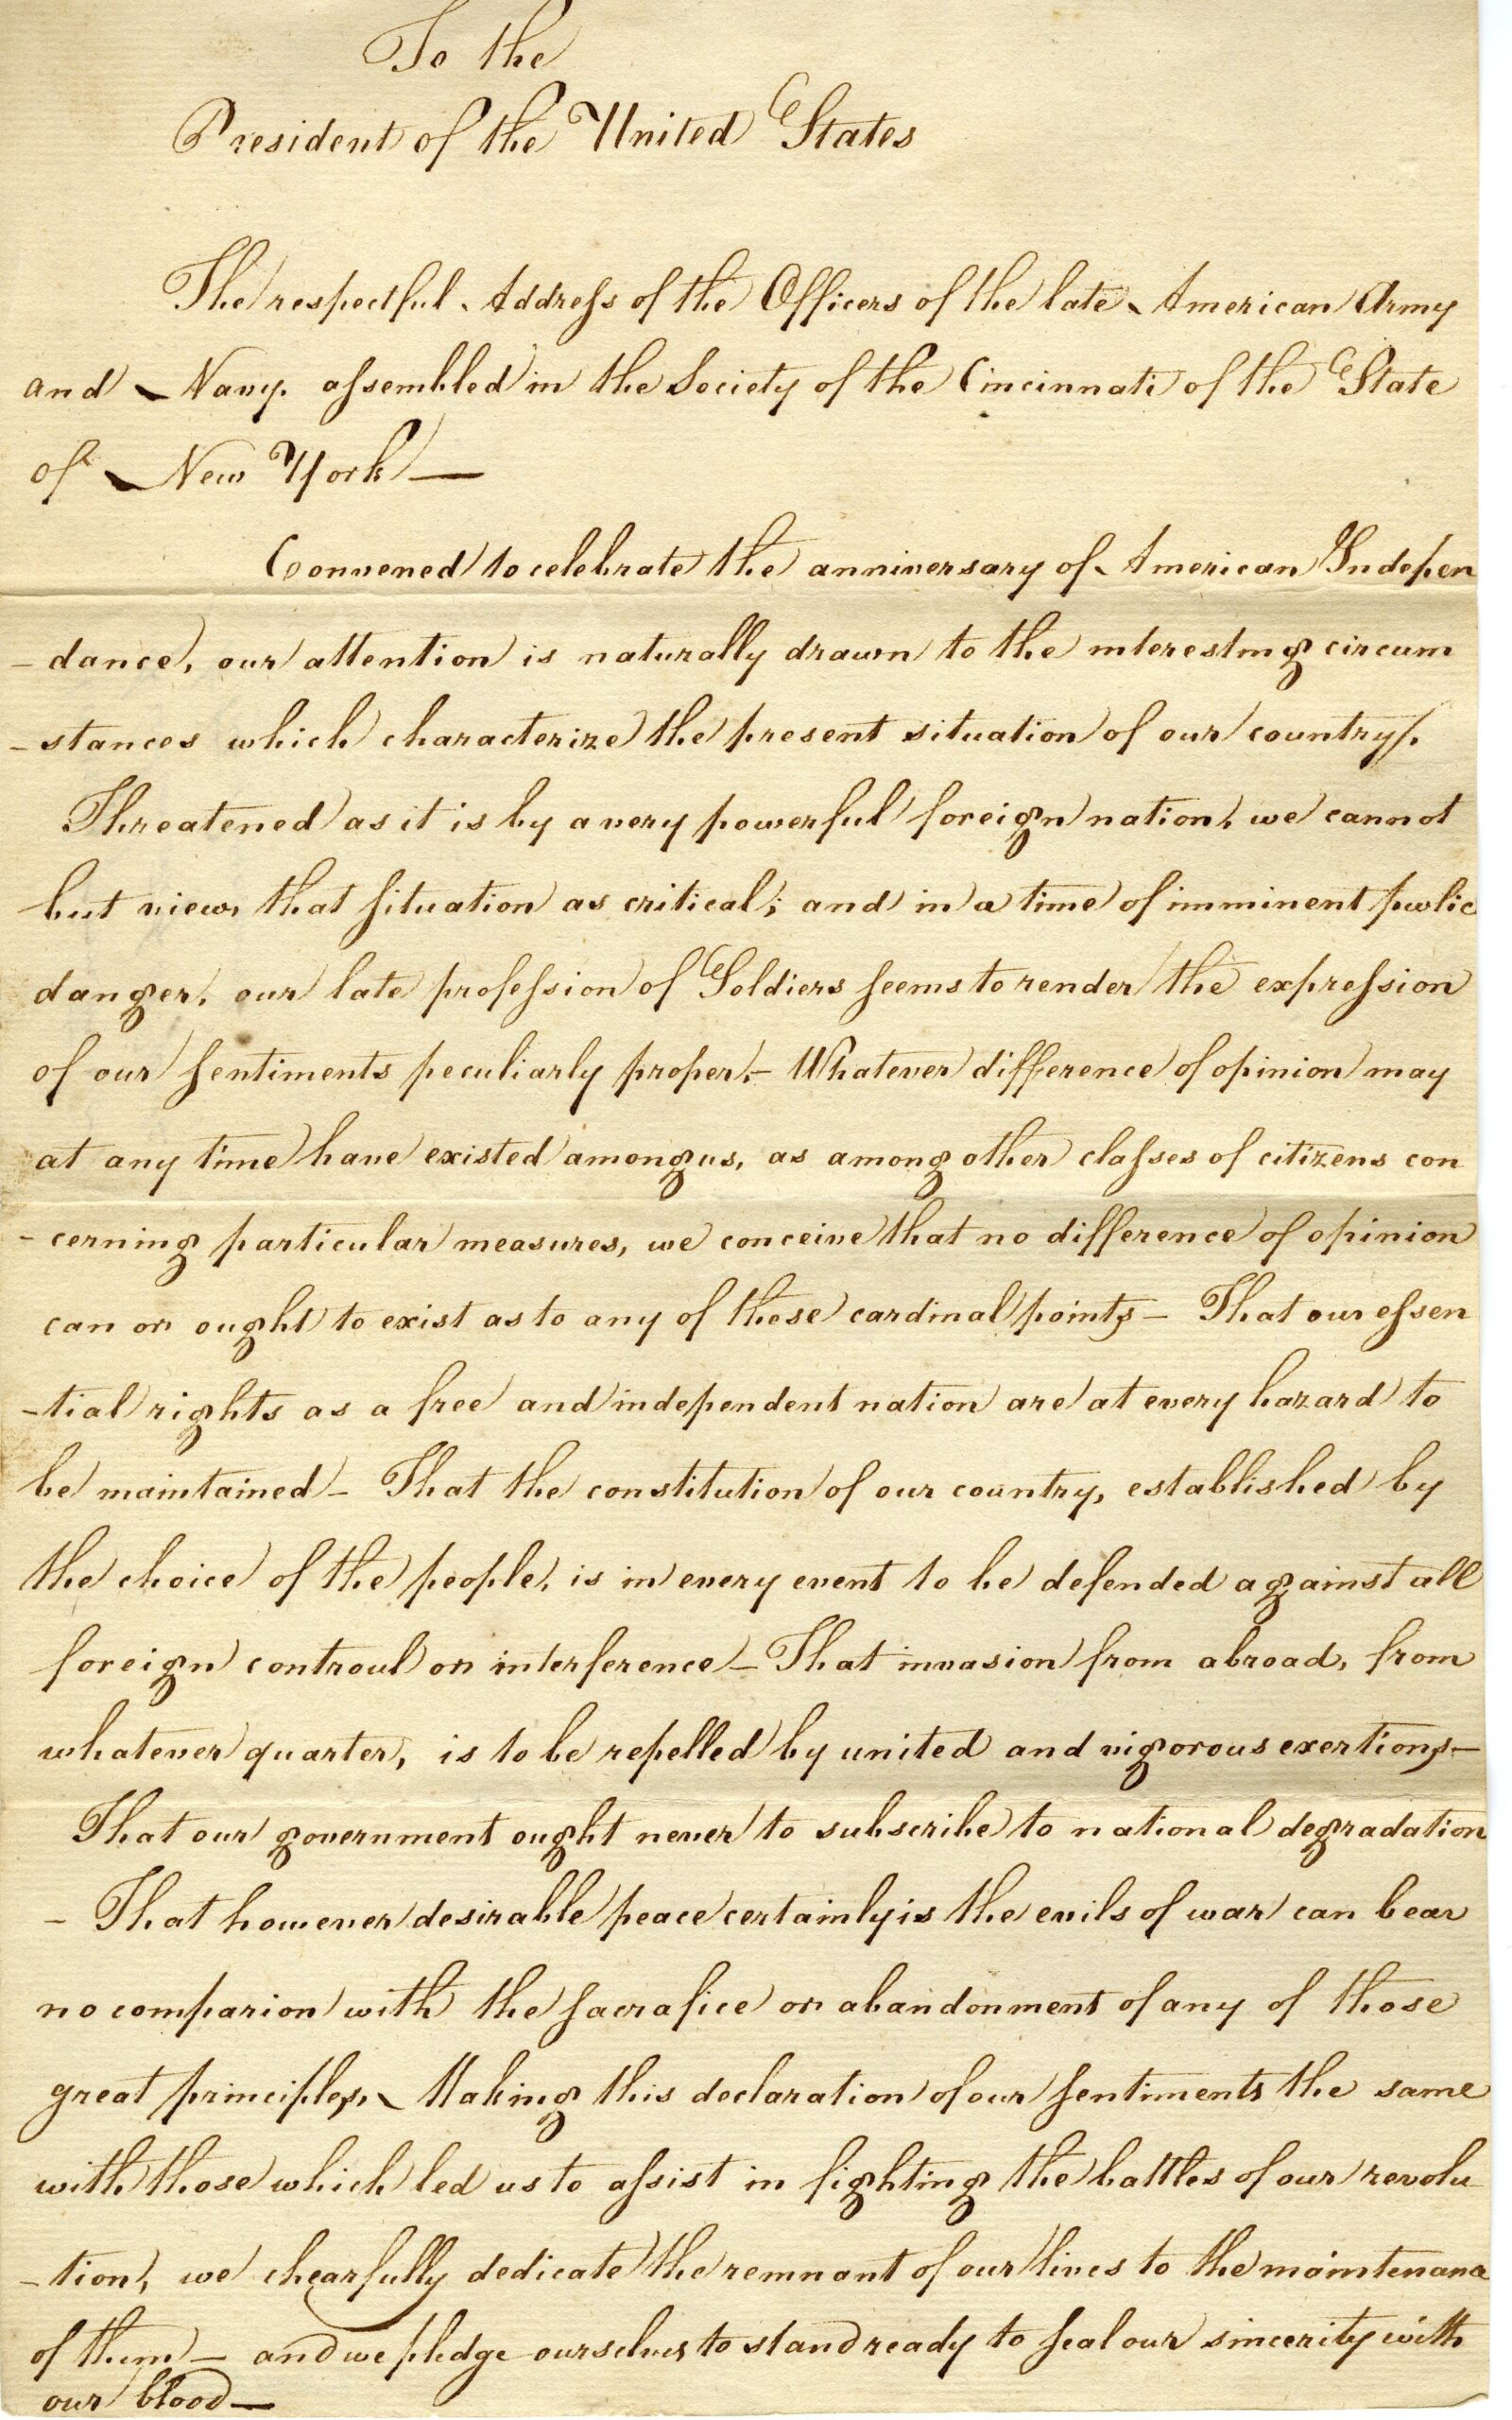 To the
President of the United States
The respectful Address of the Officers of the late American Army
and Navy. assembled in the Society of the Cincinnati of the State
of New York—
Convened to celebrate the anniversary of American Indepen
-dance, our attention is naturally drawn to the interesting circum
-stances which characterize the present situation of our country.
Threatened as it is by a very powerful foreign nation, we cannot
but view, that situation as critical; and in a time of imminent public
danger, our late profession of Soldiers seems to render the expression
of our sentiments peculiarly proper.– Whatever difference of opinion may
at any time have existed among us, as among other classes of citizens con
-cerning particular measures, we conceive that no difference of opinion
can or ought to exist as to any of these cardinal points– That our essen
-tial rights as a free and independent nation are at every hazard to
be maintained– That the constitution of our country, established by
the choice of the people, is in every event to be defended against all
foreign controul or interference– That invasion from abroad, from
whatever quarter, is to be repelled by united and vigorous exertions–
That our government ought never to subscribe to national degradation
– That however desirable peace certainly is the evils of war can bear
no comparion with the sacrafice or abandonment of any of those
great principles. Making this declaration of our sentiments the same
with those which led us to assist in fighting the battles of our revolu
-tion, we chearfully dedicate the remnant of our lives to the maintenance
of them– and we pledge ourselves to stand ready to seal our sincerity with
our blood—